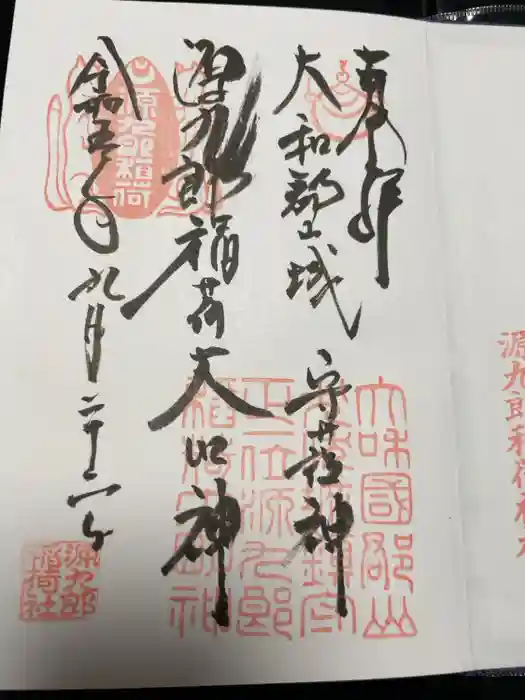 奉拝
大和郡山城 守護神
源九郎稲荷大明神
令和五年 九月二十二日
源九郎稲荷
大和国郡山
正一位源九郎
稲荷大明神
源九郎
稲荷社